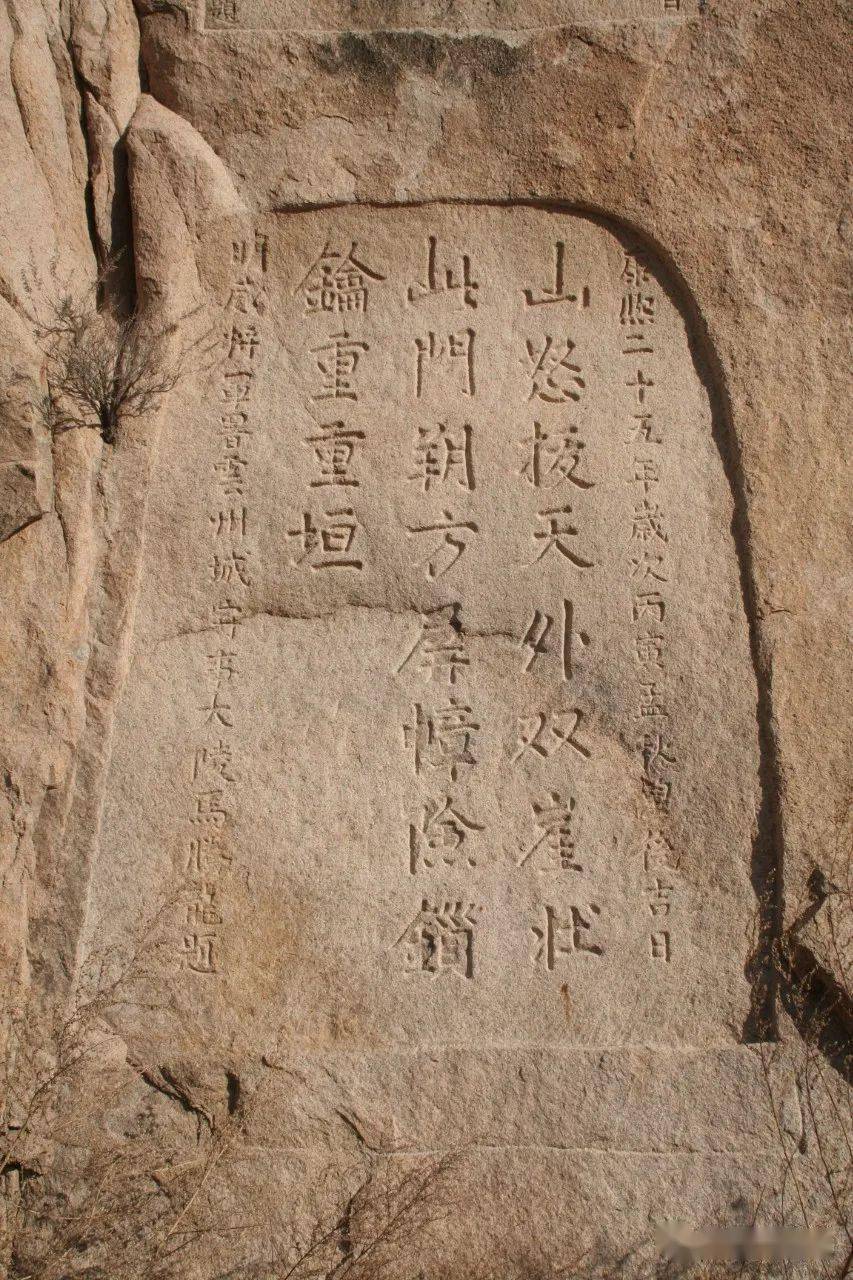 日
題
康熙二十五年歲次丙寅孟秋後吉日
山怒拔天外双崖状
此門朔方屏幛險鎖
鑰重重垣
明威将軍署雲州城守事大陵馬騰龍題